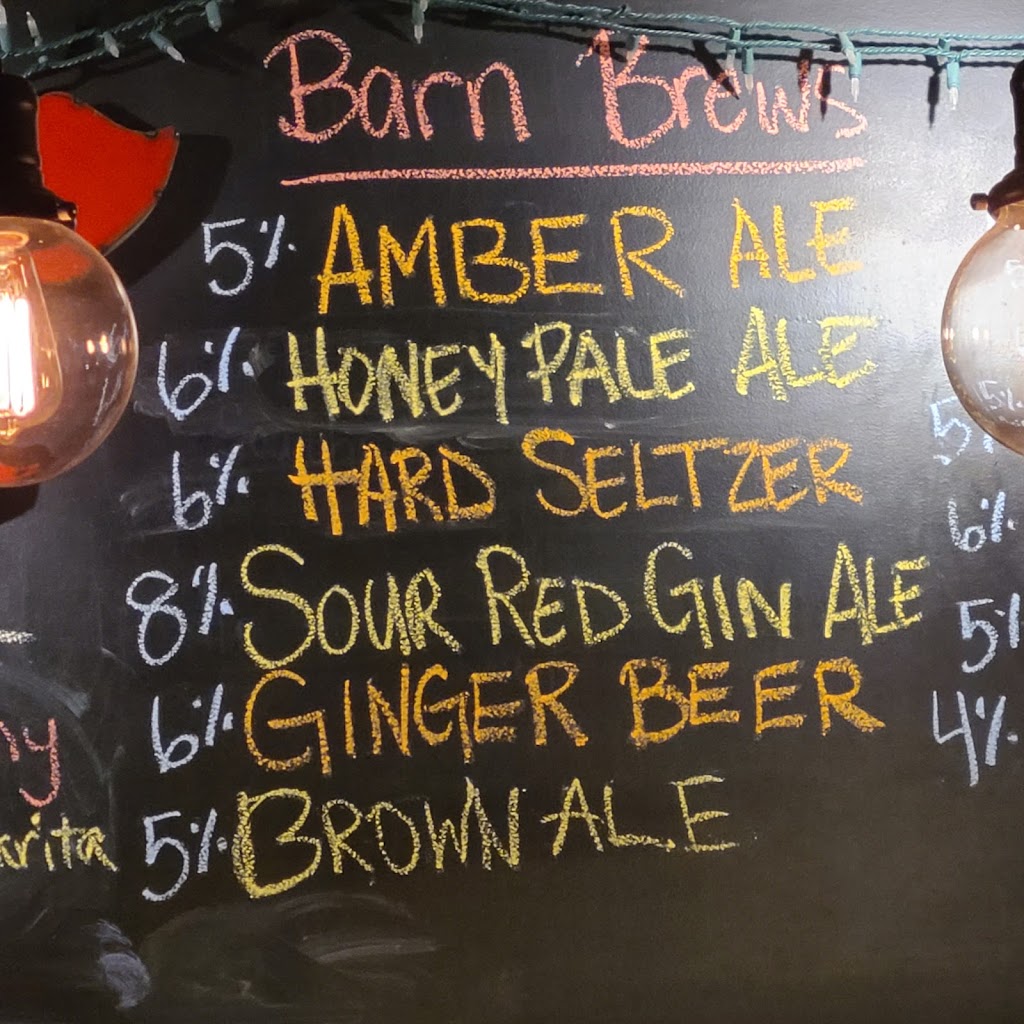 Barn Brews
5% AMBER ALE
6% HONEY PALE ALE
5%
6% HARD SELTZER
6%
8% SOUR RED GIN ALE
5%
6% GINGER BEER
4%
5% BROWN ALE